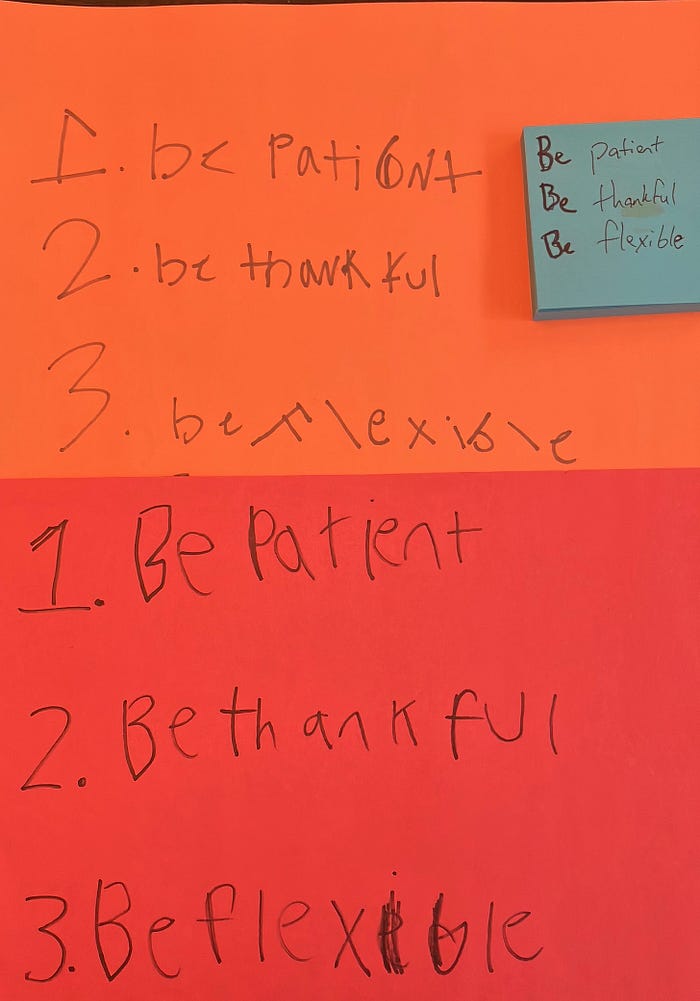 1. be patient
2. be thankful
3. be flexible
Be patient
Be thankful
Be flexible
1. Be Patient
2. Be thankful
3. Be flexible